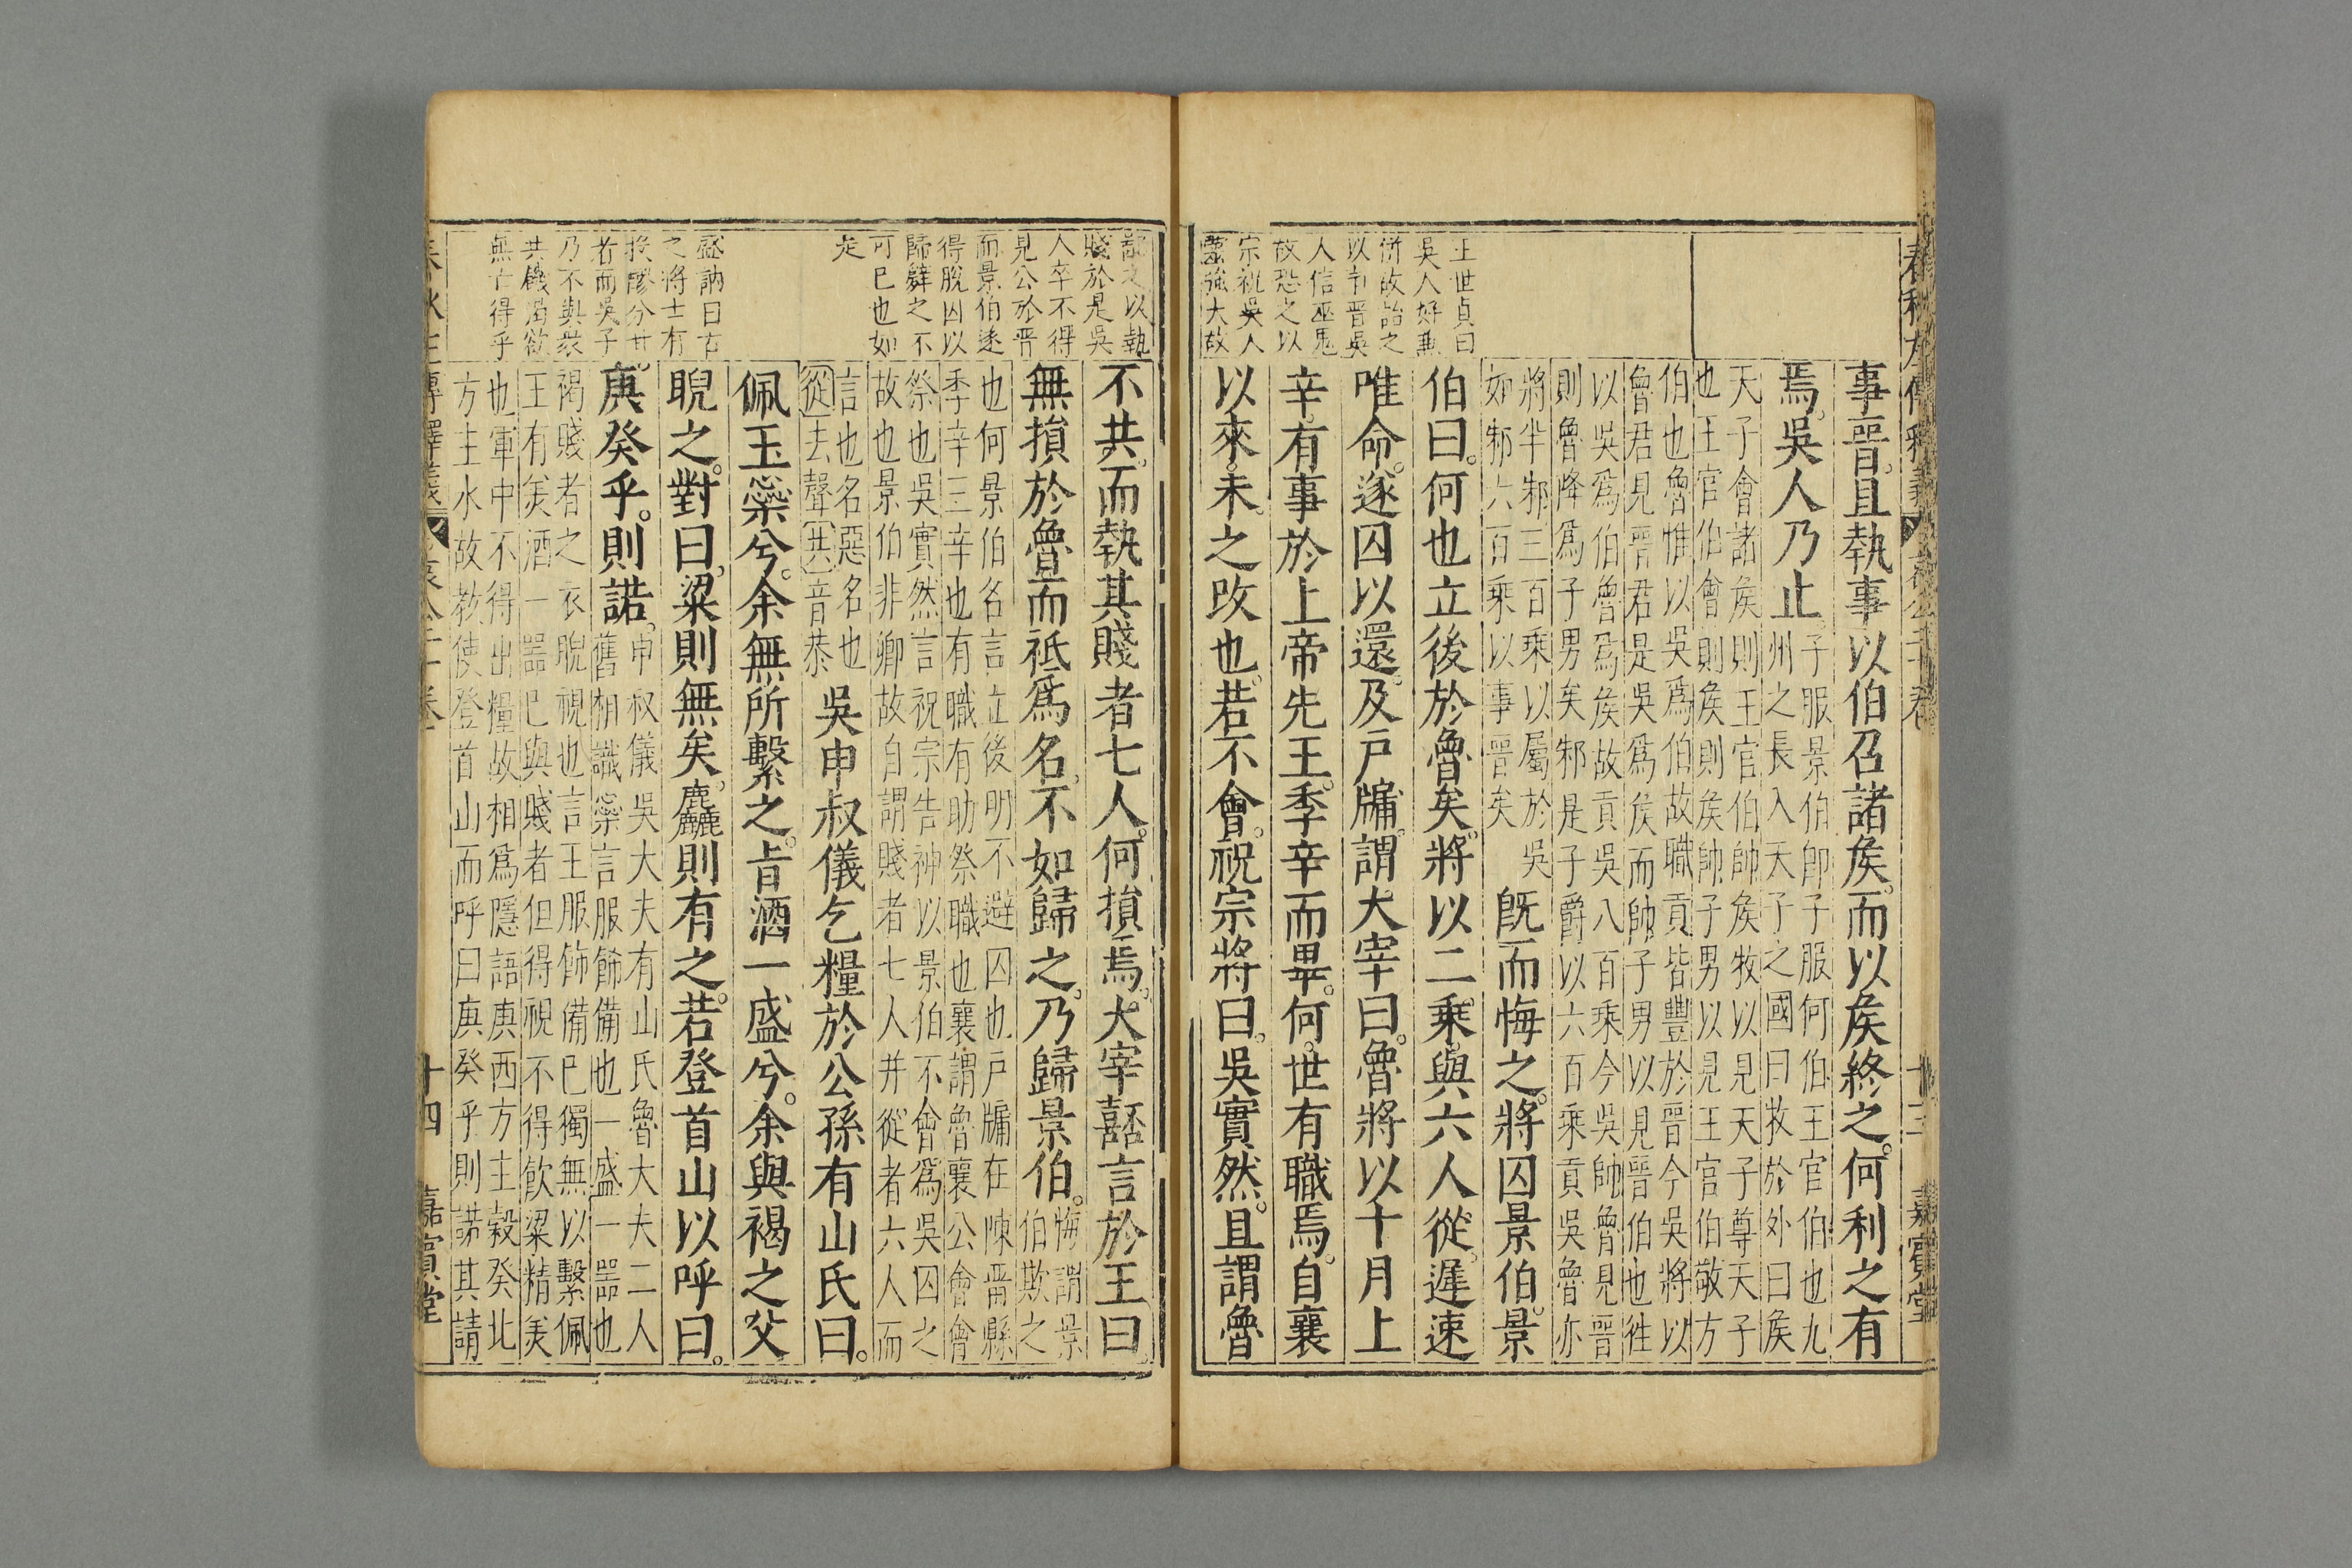 事晉且執事以伯召諸矦而以矦終之何利之有
焉吳人乃止
子服景伯卽子服何伯王官伯也九
州之長入天子之國曰牧於外曰矦
天子會諸矦則王官伯帥矦牧以見天子尊天子
也王官伯會則矦則矦帥子男以見王官伯敬方
伯也魯惟以吳爲伯故職貢皆豐於晉今吳將以
魯君見晉君是吳爲矦而帥子男以見晉伯也徃
以吳爲伯魯爲矦故貢吳八百乘今吳帥魯見晉
則魯降爲子男矣邾是子爵以六百乘貢吳魯亦
將半邾三百乘以屬於吳
如邾六百乘以事晉矣
旣而悔之將囚景伯景
伯曰何也立後於魯矣將以二乘與六人從遲速
唯命遂囚以還及戸牖謂大宰曰魯將以十月上
辛有事於上帝先王季辛而畢何世有職焉自襄
以來未之攺也若不會祝宗將曰吳實然且謂魯
王世貞曰
吳人好兼
併故詒之
以
晉吳
人信巫鬼
故恐之以
宗祝吳人
強大故
不共而執其賤者七人何損焉大宰嚭言於王曰
無損於魯而祗爲名不如歸之乃歸景伯
悔謂景
伯欺之
也何景伯名言立後明不避囚也戸牖在陳畱縣
季辛三辛也有職有助祭職也襄謂魯襄公會會
祭也吳實然言祝宗告神以景伯不會爲吳囚之
故也景伯非卿故自謂賤者七人幷從者六人而
言也名惡名也
從去聲共音恭
吳申叔儀乞糧於公孫有山氏曰
佩玉橤兮余無所繫之旨酒一盛兮余與褐之父
睨之對曰粱則無矣麤則有之若登首山以呼曰
庚癸乎則諾
申叔儀吳大夫有山氏魯大夫二人
舊相識橤言服飾備也一盛一器也
褐賤者之衣睨視也言王服飾備巳獨無以繫佩
王有美酒一器巳與賤者但得視不得飲粱精美
也軍中不得出糧故相爲隱語庚西方主穀癸北
方主水故教使登首山而呼曰庚癸乎則諾其請
之以執
賤於是吳
人卒不得
見公於晉
而景伯遂
得脫囚以
歸辭之不
可已也如
是
盛訥曰古
之將士有
投醪分甘
者而吳子
乃不與裘
共饑渴欲
無亡得乎
十四
嘉賓堂
嘉賓堂